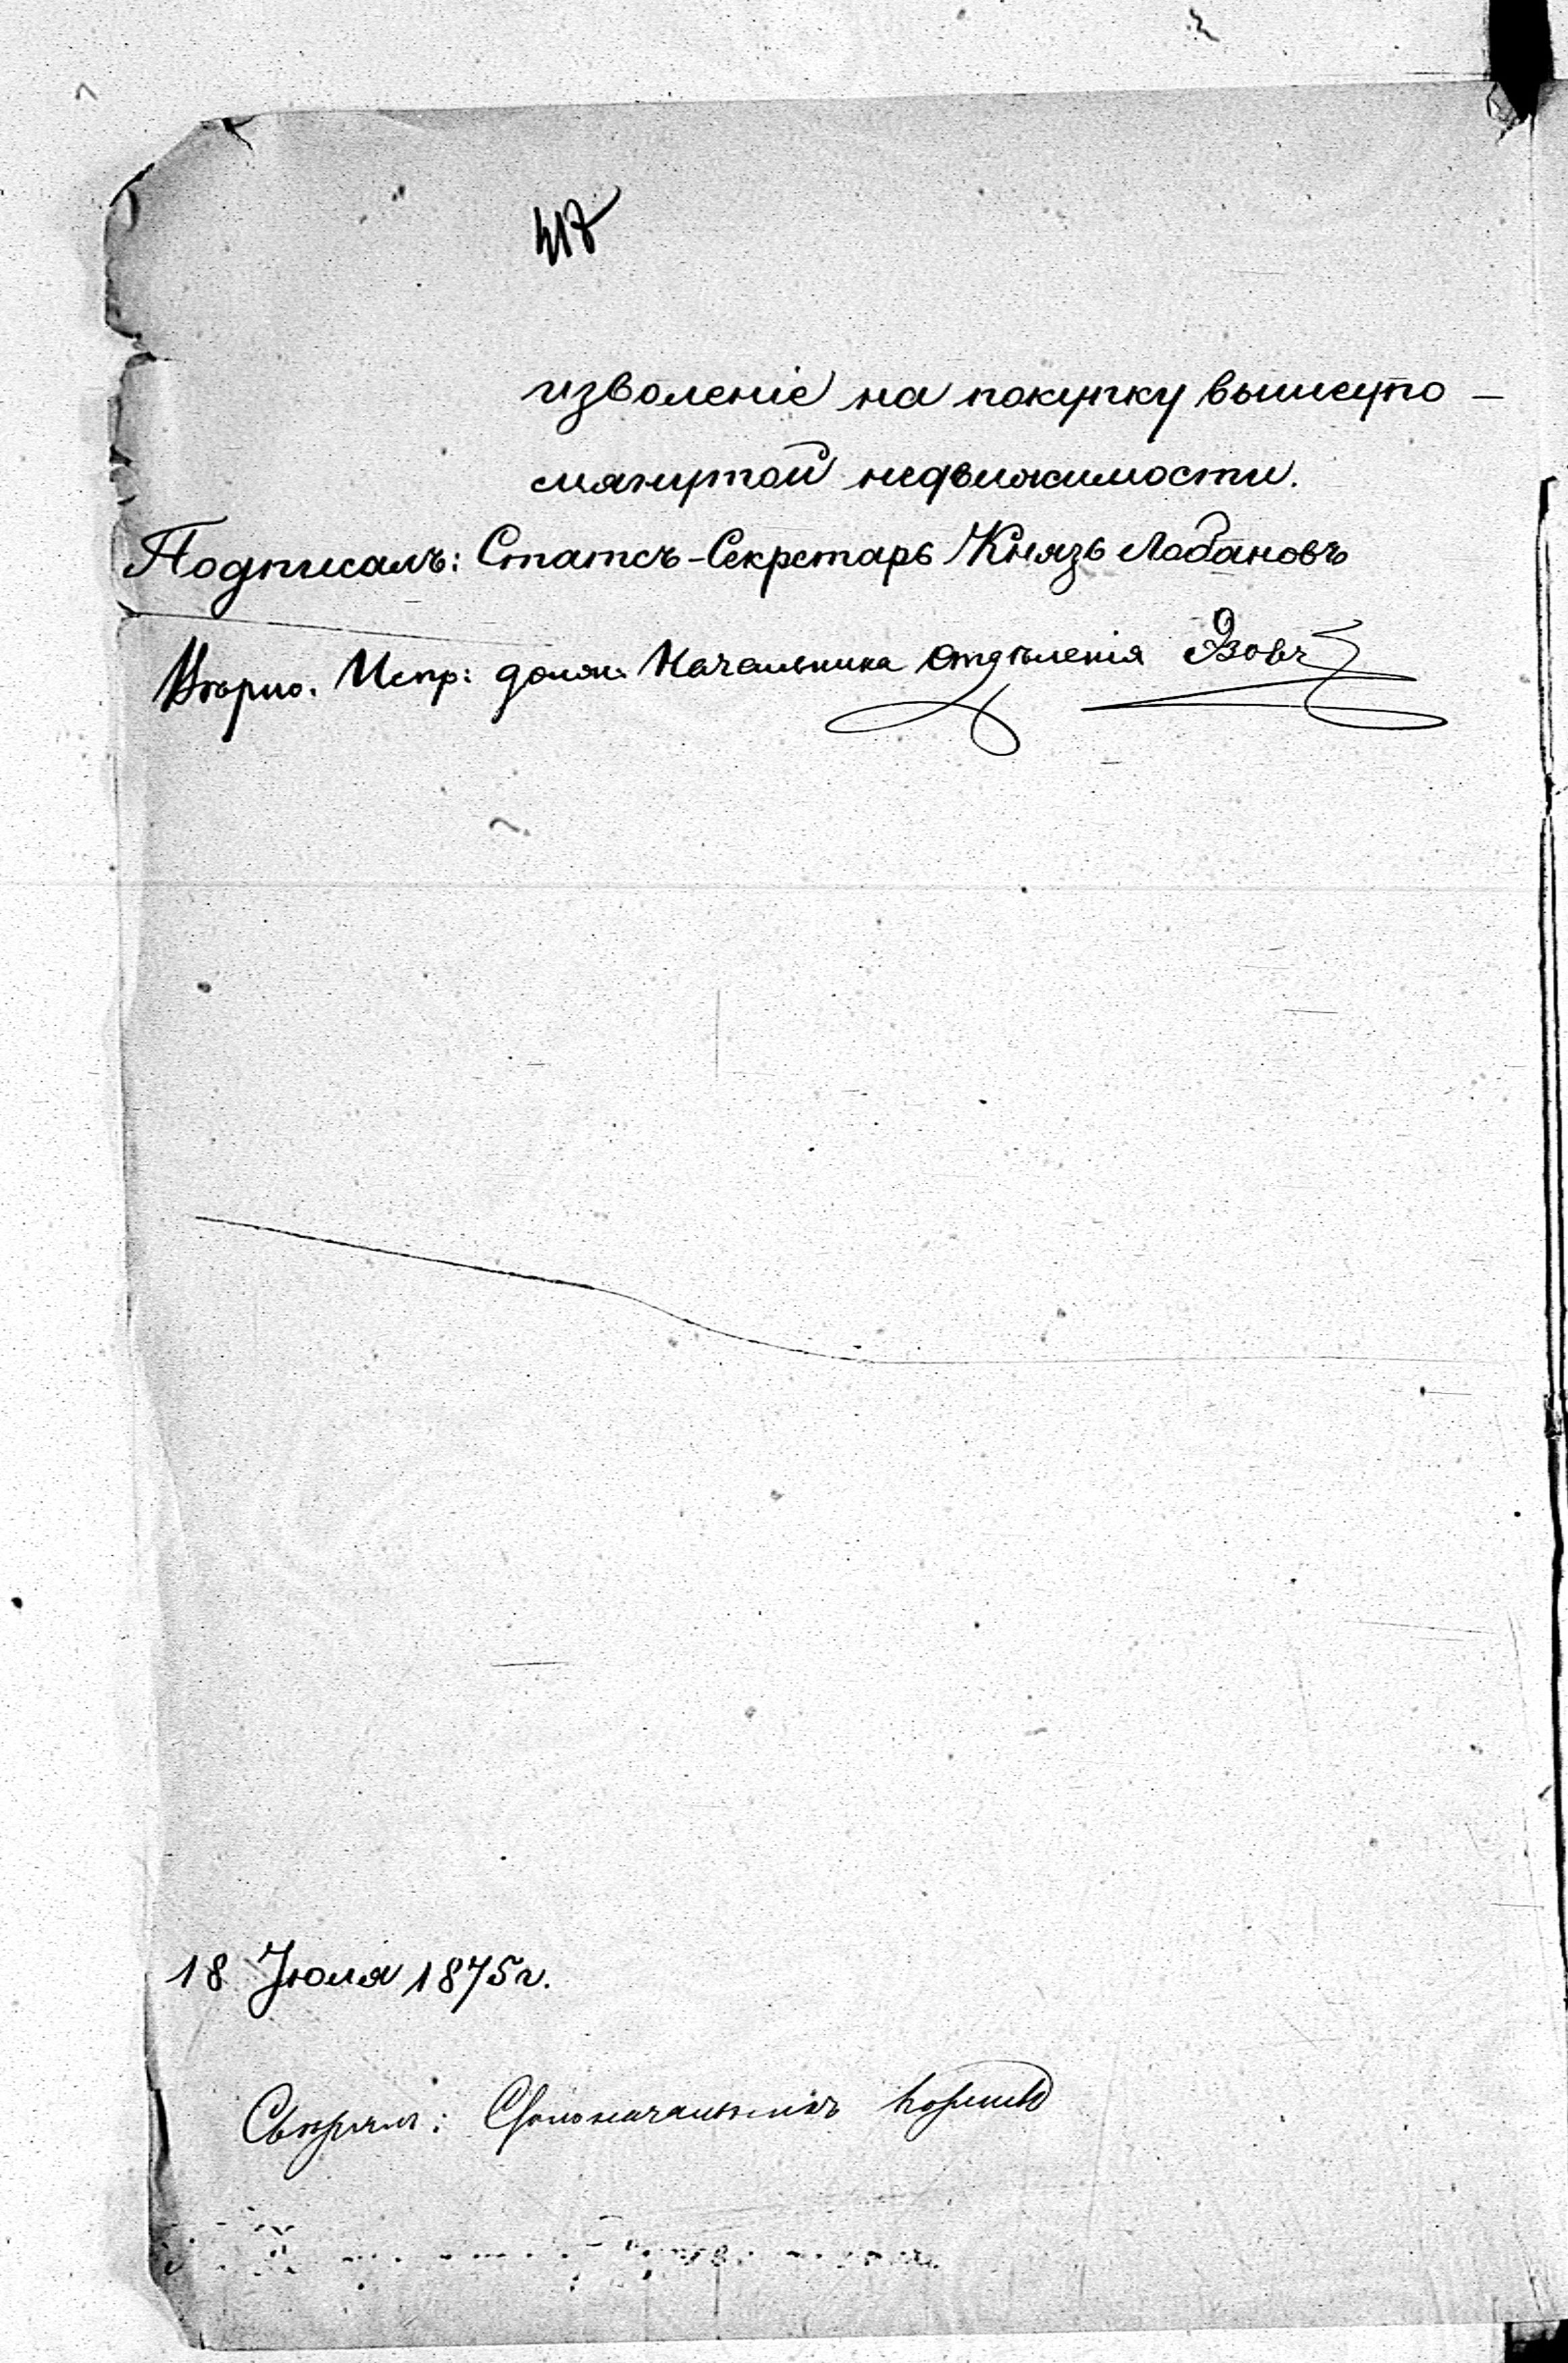 изволеніе на покупку вышеупо-
мянутой недвижимости.
Подписалъ: Статсъ-Секретарь Князь Лобановъ
Вѣрно. Испр: должн. Начальника Отдѣленія Эзовъ
18 Іюля 1875 г.
Свѣрялъ: Столоначальникъ